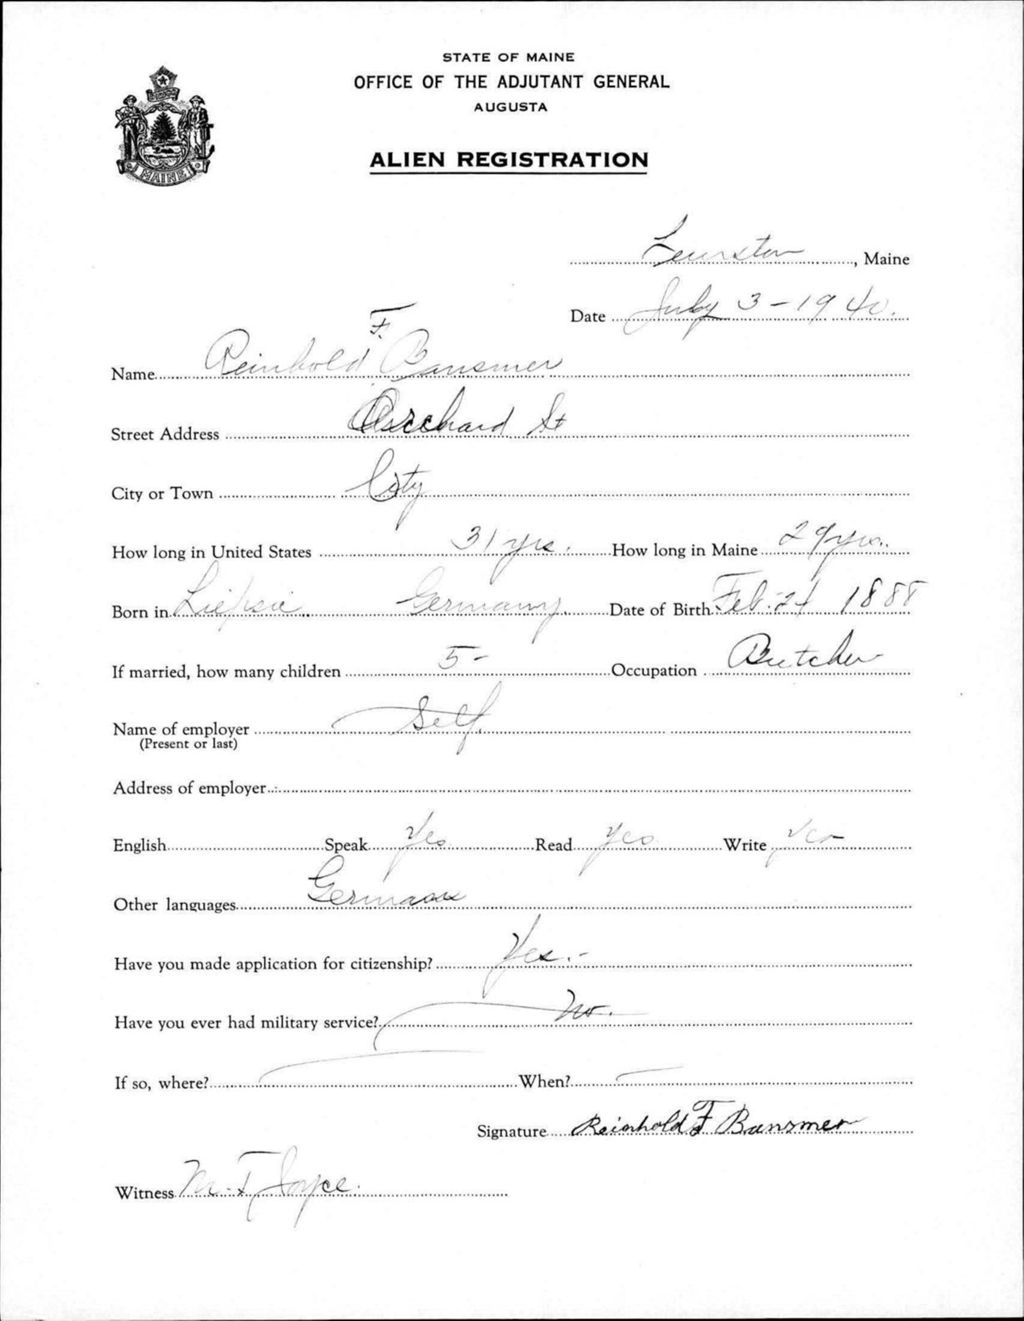 STATE OF MAINE
OFFICE OF THE ADJUTANT GENERAL
AUGUSTA
ALIEN REGISTRATION
MAINE
Lewiston, Maine
Date July 3-1940.
Name Reinhold F. Bansmer
Street Address Orchard St
City or Town City
How long in United States 31 yrs. How long in Maine 29 yrs.
Born in Liepsic Germany Date of Birth Feb. 24 1888
If married, how many children 5- Occupation Butcher
Name of employer Self
(Present or last)
Address of employer
English Speak Yes Read Yes Write Yes
Other languages German
Have you made application for citizenship? Yes.-
Have you ever had military service? No.
If so, where? When?
Signature Reinhold F. Bansmer
Witness M. T. Joyce